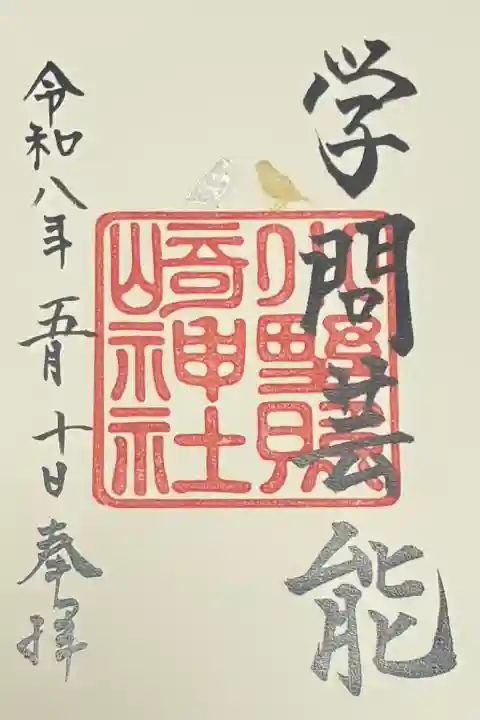 学問芸能
小野照
崎神社
令和八年 五月 十日 奉拝